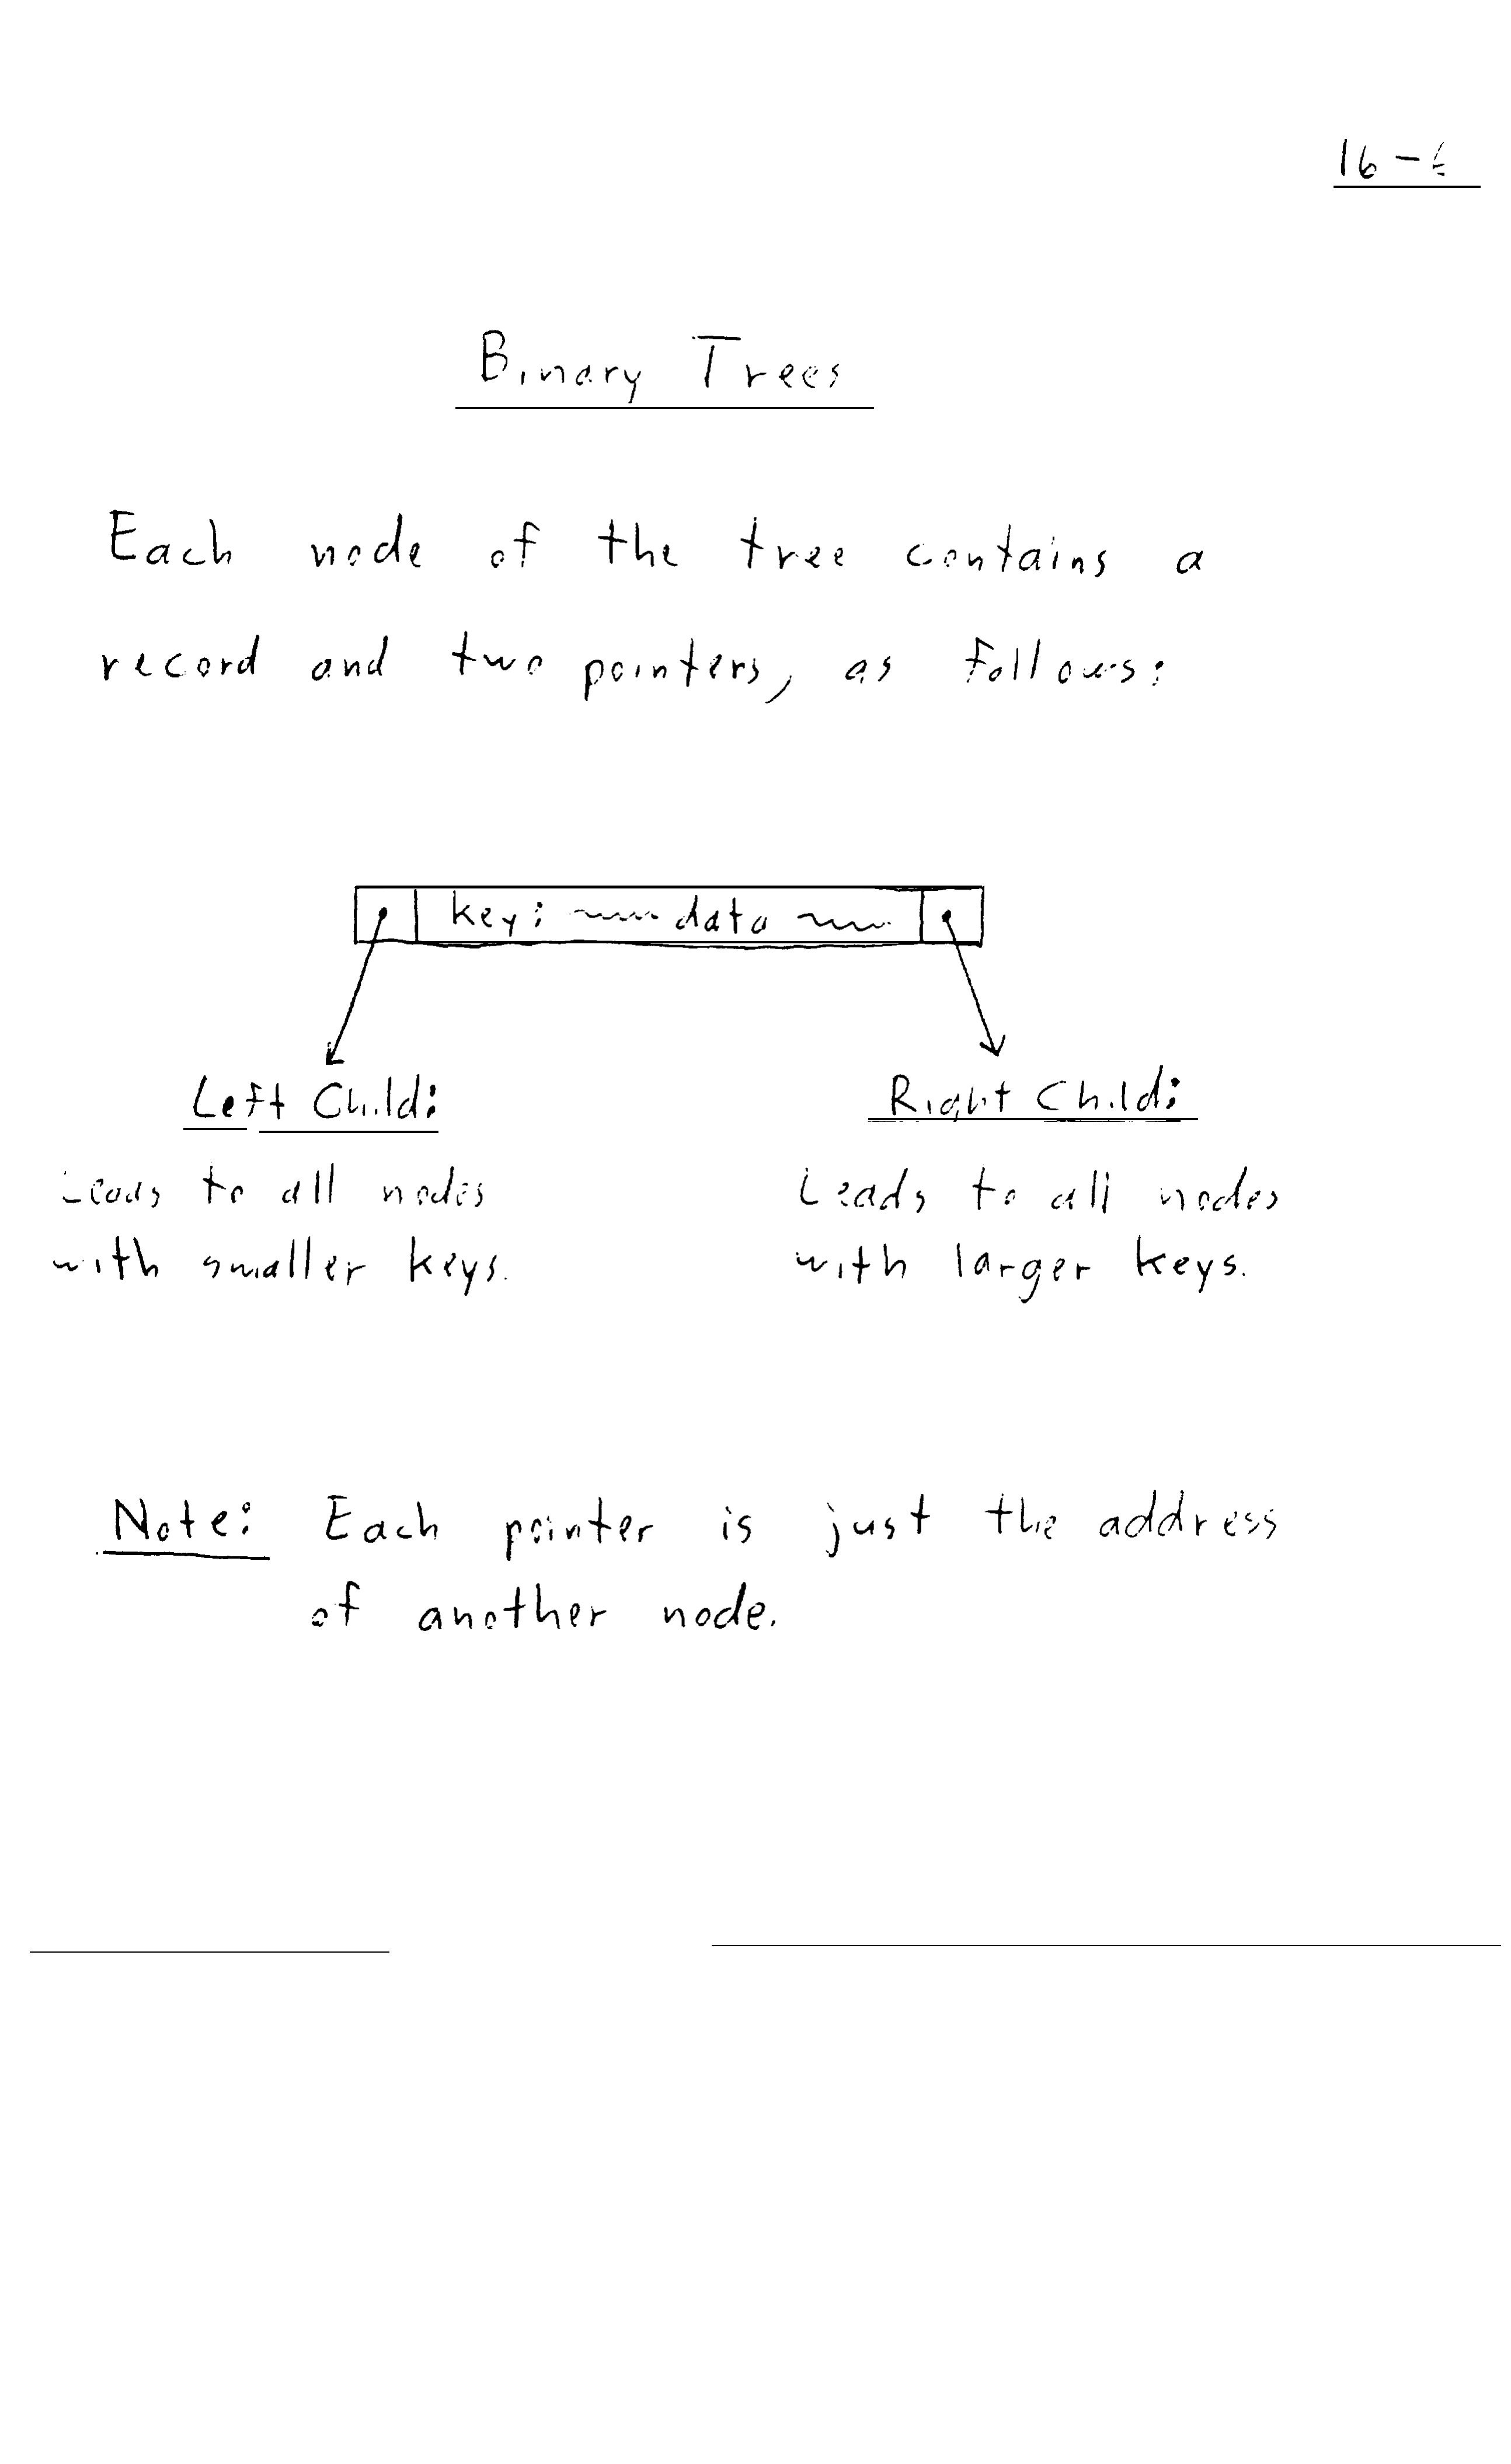 16-
Binary Trees
Each node of the tree contains a
record and two pointers, as follows:
key: data
Left Child:
Leads to all nodes
with smaller keys.
Right Child:
Leads to all nodes
with larger keys.
Note: Each pointer is just the address
of another node.